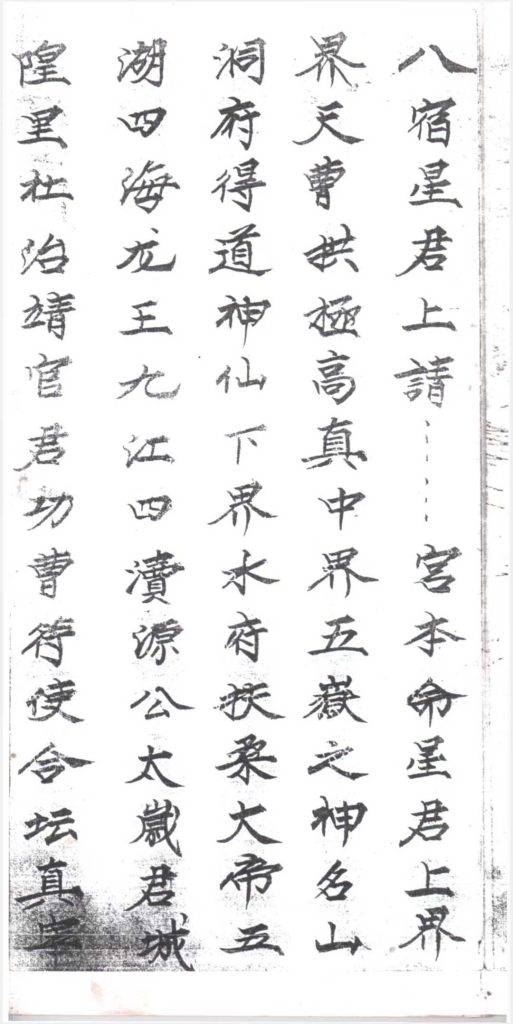 八宿星君上請⋯⋯宮本命星君上界
界天曹拱極高真中界五嶽之神名山
洞府得道神仙下界水府扶桑大帝五
湖四海龙王九江四瀆源公太歲君城
隍里社治靖官君功曹符使合坛真宰